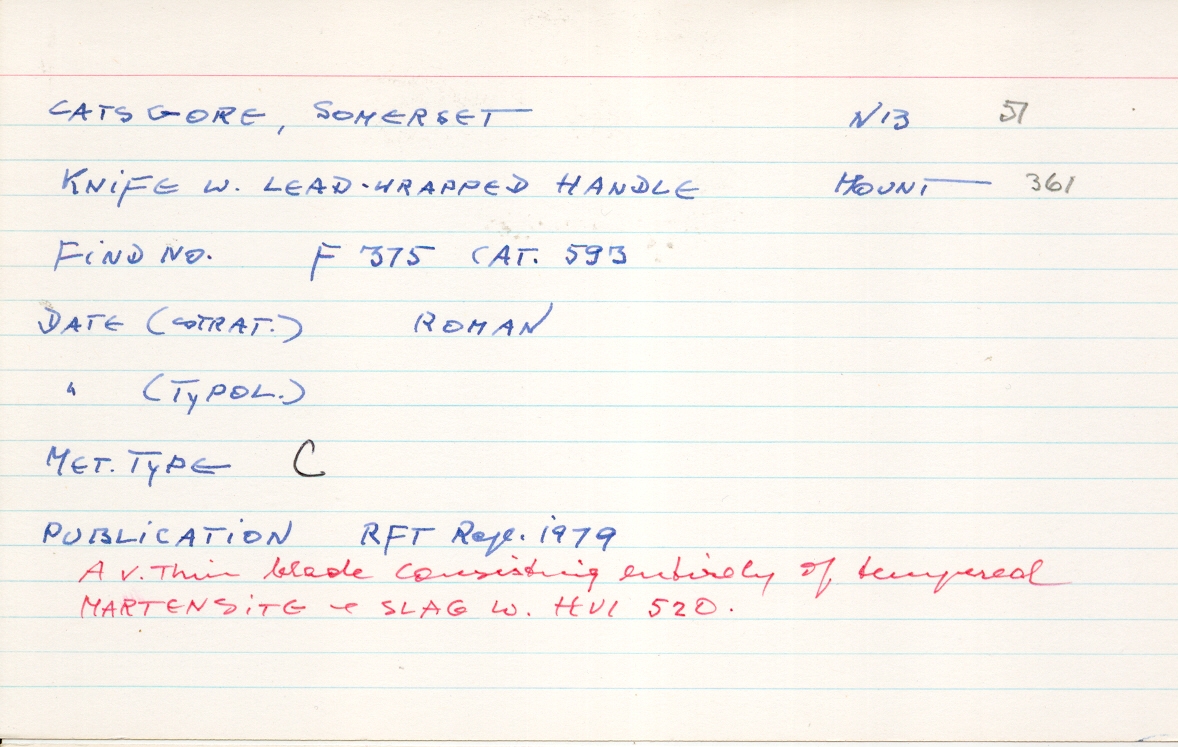 CATSGORE, SOMERSET N13 51
KNIFE W. LEAD-WRAPPED HANDLE MOUNT 361
FIND NO. F 375 CAT. 593
DATE (STRAT.) ROMAN
" (TYPOL.)
MET. TYPE C
PUBLICATION RFT Rep. 1979
A v. Thin blade consisting entirely of tempered
MARTENSITE + SLAG W. HV1 520.